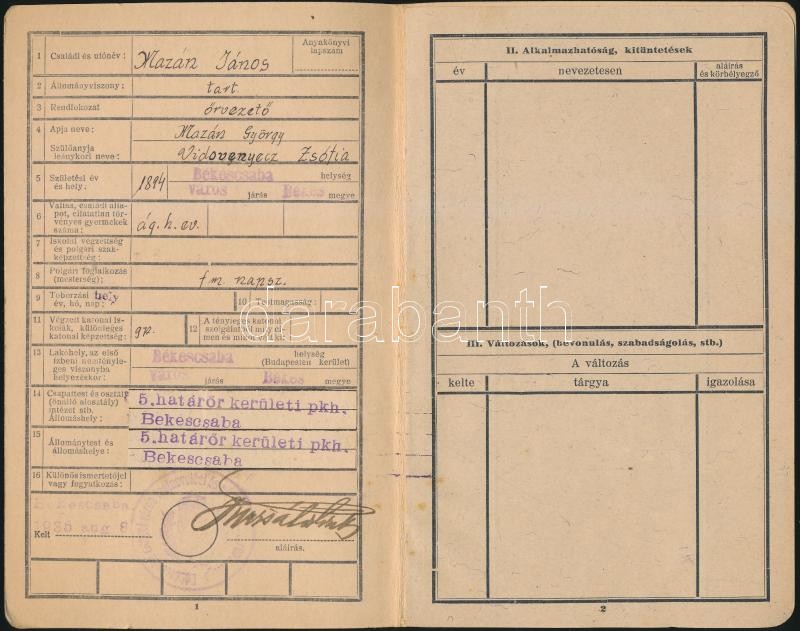 1 Családi és utónév: Mazán János
Anyakönyvi
lapszám
2 Állományviszony: tart.
3 Rendfokozat őrvezető
4 Apja neve: Mazán György
Szülőanyja
leánykori neve: Vidovenyecz Zsófia
5 Születési év
és hely: 1894 Békéscsaba helység
város járás Békés megye
6 Vallás, családi álla-
pot, ellátatlan tör-
vényes gyermekek
száma: ág. h. ev.
7 Iskolai végzettség
és polgári szak-
képzettség:
8 Polgári foglalkozás
(mesterség): fm. napsz.
9 Toborzási hely
év, hó, nap:
10 Testmagasság:
11 Végzett katonai is-
kolák, különleges
katonai képzettség: gp.
12 A tényleges katonai
szolgálatot mily cí-
men és mikor
13 Lakóhely, az első
ízbeni nemtényle-
ges viszonyba
helyezéskor: Békéscsaba helység
(Budapesten kerület)
város járás Békés megye
14 Csapattest és osztály
(önálló alosztály)
intézet stb.
Állomáshely: 5.határőr kerületi pkh.
Békéscsaba
15 Állománytest és
állomáshelye: 5.határőr kerületi pkh.
Békéscsaba
16 Különös ismertetőjel
vagy fogyatkozás:
Békéscsaba
1938 aug 8
Kelt
aláírás.
1
II. Alkalmazhatóság, kitüntetések
év nevezetesen aláírás
és körbélyegző
III. Változások, (bevonulás, szabadságolás, stb.)
A változás
kelte tárgya igazolása
2
darabanth.com